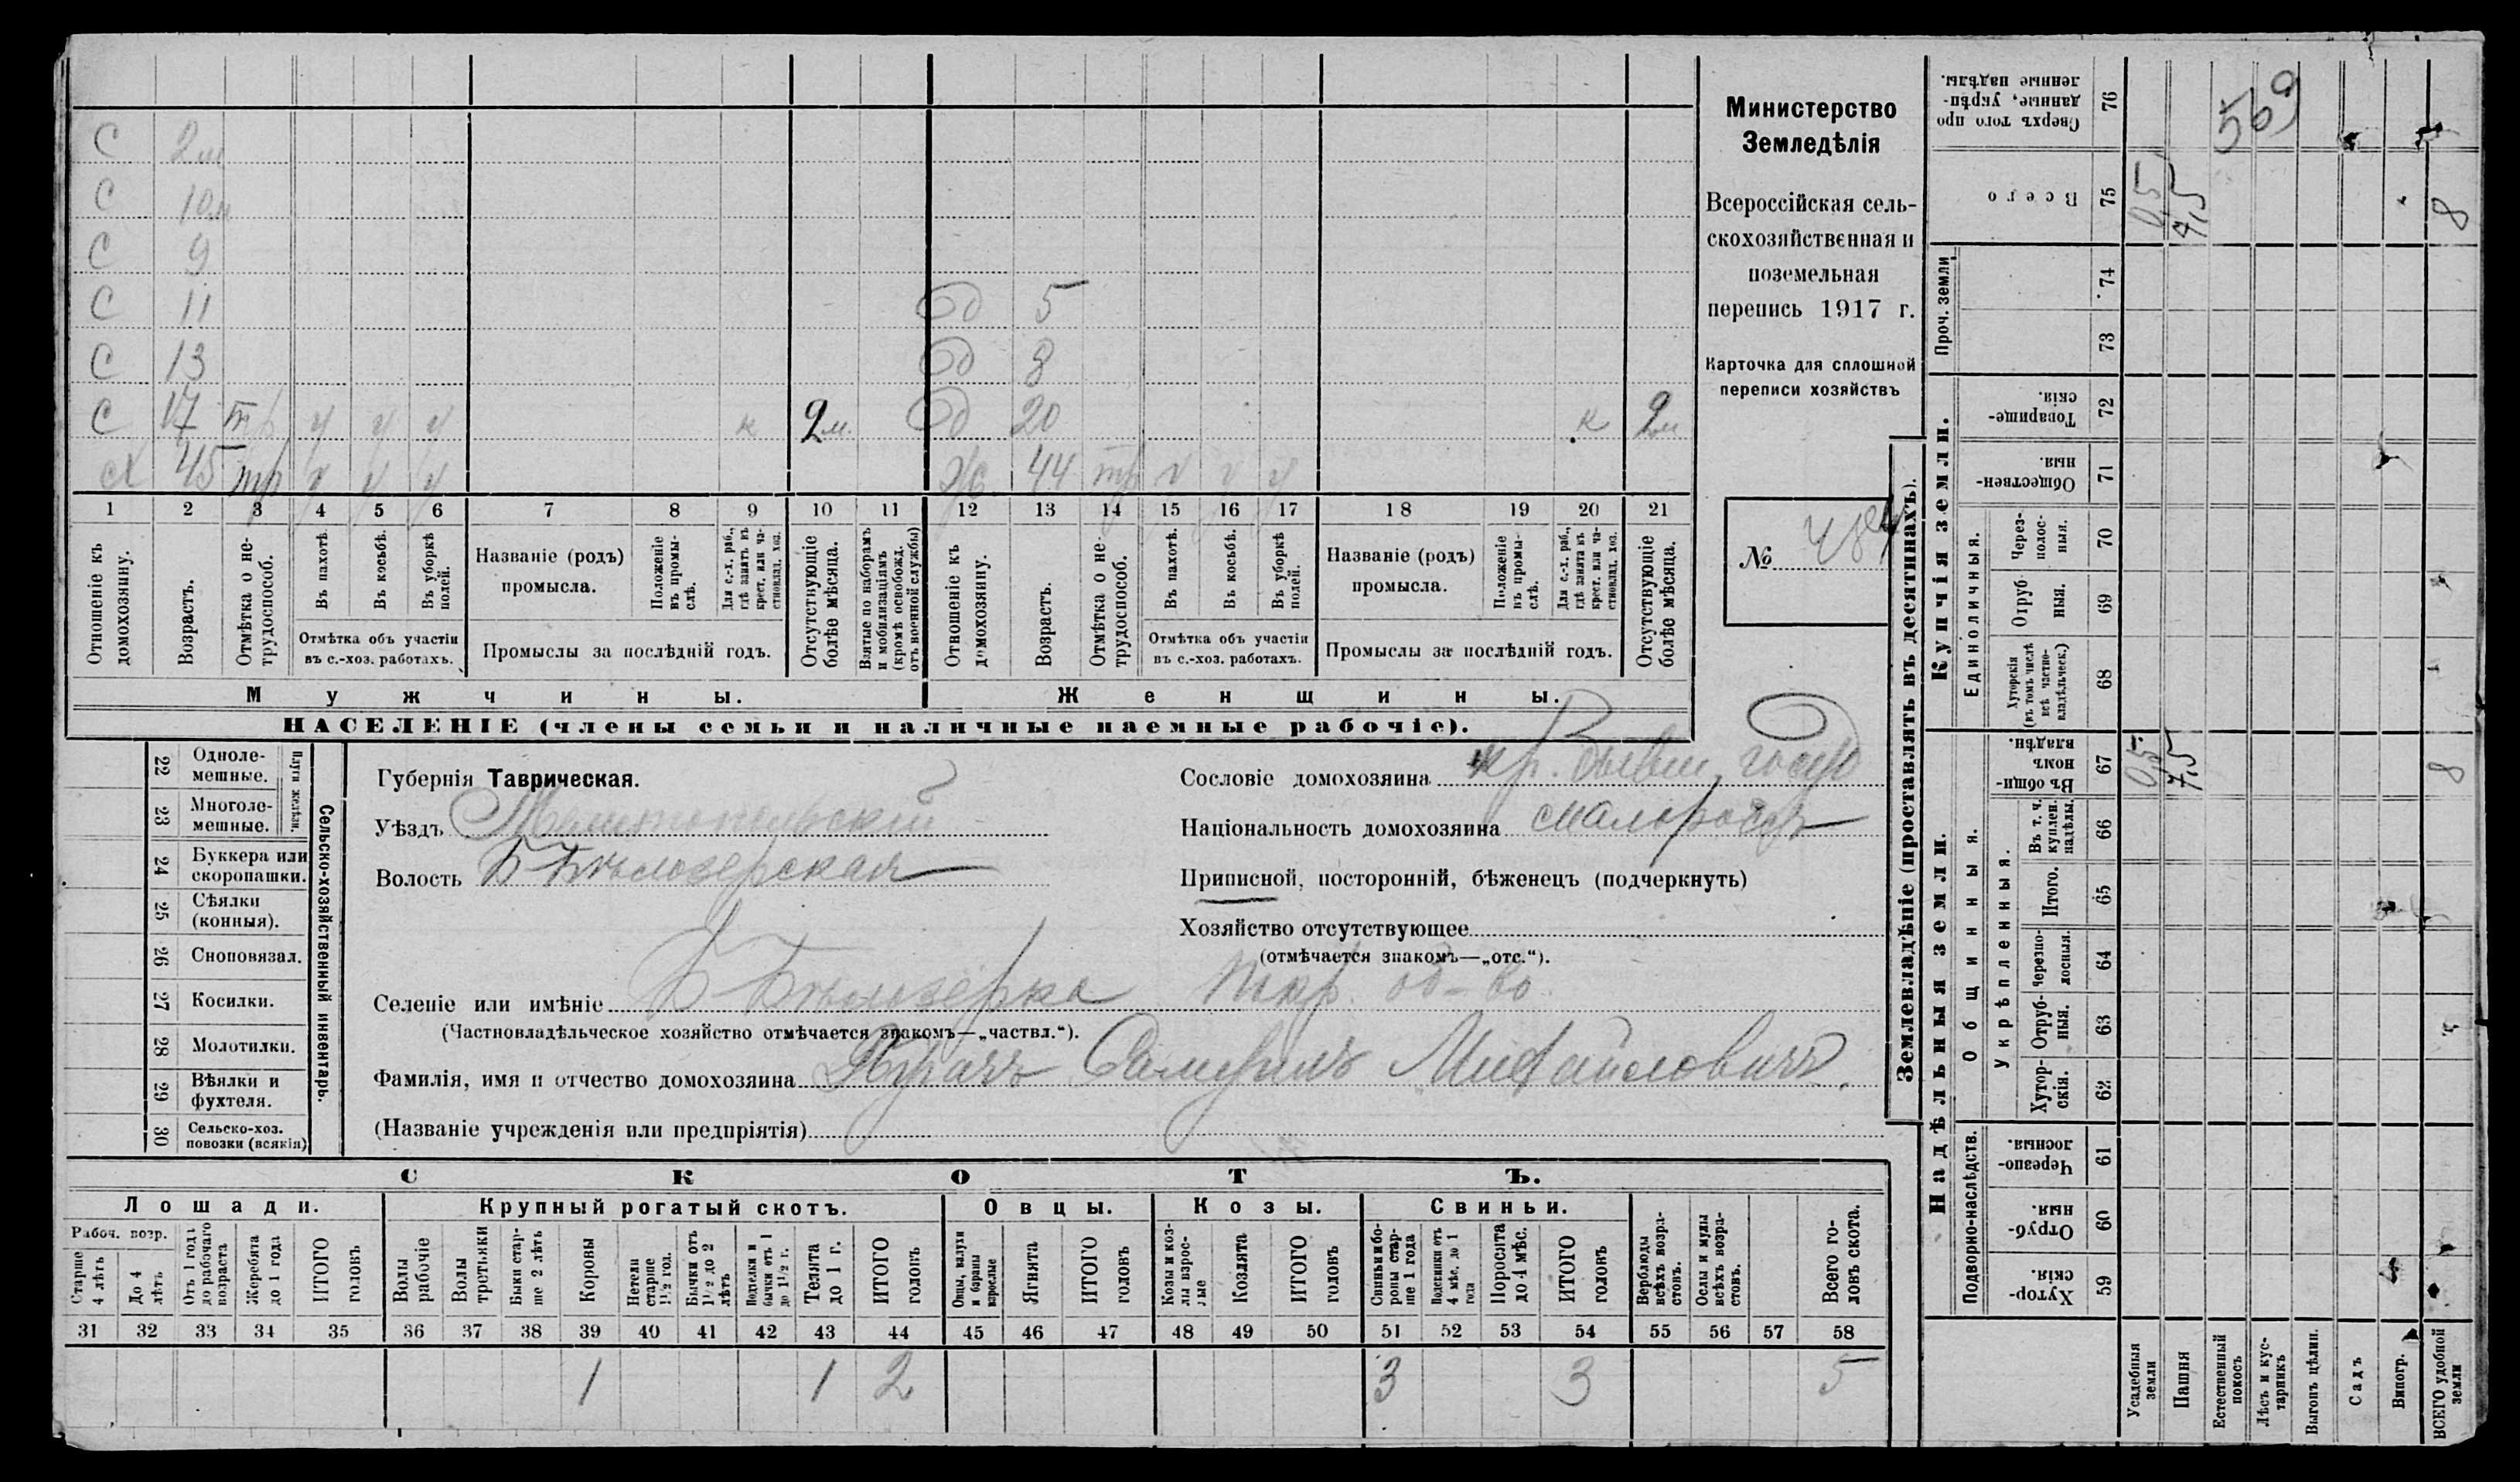 С 2 м
С 10 м
С 9
С 11 д 5
С 13 д 8
С 17 тр у у у к 2 м. д 20 к 2 м
Х 45 тр у у у Ж. 44 тр у у у
1 2 3 4 5 6 7 8 9 10 11 12 13 14 15 16 17 18 19 20 21
Отношеніе къ домохозяину.
Возрастъ.
Отмѣтка о нетрудоспособ.
Въ пахотѣ.
Въ косьбѣ.
Въ уборкѣ полей.
Отмѣтка объ участіи въ с.-хоз. работахъ.
Названіе (родъ) промысла.
Положеніе въ промыслѣ.
Для с.-х. раб., гдѣ занятъ въ крест. или частновлад. хоз.
Промыслы за послѣдній годъ.
Отсутствующіе болѣе мѣсяца.
Взятые по наборамъ и мобилизаціямъ (кромѣ освобожд. отъ военной службы)
Отношеніе къ домохозяину.
Возрастъ.
Отмѣтка о нетрудоспособ.
Въ пахотѣ.
Въ косьбѣ.
Въ уборкѣ полей.
Отмѣтка объ участіи въ с.-хоз. работахъ.
Названіе (родъ) промысла.
Положеніе въ промыслѣ.
Для с.-х. раб., гдѣ занята въ крест. или частновлад. хоз.
Промыслы за послѣдній годъ.
Отсутствующіе болѣе мѣсяца.
Мужчины. Женщины.
НАСЕЛЕНІЕ (члены семьи и наличные наемные рабочіе).
Министерство
Земледѣлія
Всероссійская сель-
скохозяйственная и
поземельная
перепись 1917 г.
Карточка для сплошной
переписи хозяйствъ
№
22 Одноле-
мешные.
23 Многоле-
мешные.
Плуги желѣзн.
24 Буккера или
скоропашки.
25 Сѣялки
(конныя).
26 Сноповязал.
27 Косилки.
28 Молотилки.
29 Вѣялки и
фухтеля.
30 Сельско-хоз.
повозки (всякія)
Сельско-хозяйственный инвентарь.
Губернія Таврическая.
Уѣздъ Мелитопольскій
Волость Б Бѣлозерская
Сословіе домохозяина кр. бывш. госуд
Національность домохозяина малороссъ
Приписной, посторонній, бѣженецъ (подчеркнуть)
Хозяйство отсутствующее
(отмѣчается знакомъ—„отс.“).
Селеніе или имѣніе Б Бѣлозерка Покр. об-во
(Частновладѣльческое хозяйство отмѣчается знакомъ—„частвл.“).
Фамилія, имя и отчество домохозяина Самуилъ Михайловичъ.
(Названіе учрежденія или предпріятія)
СКОТЪ.
Лошади. Крупный рогатый скотъ. Овцы. Козы. Свиньи.
Рабоч. возр.
Старше 4 лѣтъ
До 4 лѣтъ
Отъ 1 года до рабочаго возраста
Жеребята до 1 года
ИТОГО головъ
Волы рабочіе
Волы третьяки
Быки старше 2 лѣтъ
Коровы
Нетели старше 1½ год.
Бычки отъ 1½ до 2 лѣтъ
Подтелки и бычки отъ 1 до 1½ г.
Телята до 1 г.
ИТОГО головъ
Овцы, валухи и бараны взрослые
Ягнята
ИТОГО головъ
Козы и козлы взрослые
Козлята
ИТОГО головъ
Свиньи и боровы старше 1 года
Подсвинки отъ 4 мѣс. до 1 года
Поросята до 4 мѣс.
ИТОГО головъ
Верблюды всѣхъ возрастовъ.
Ослы и мулы всѣхъ возрастовъ.
Всего головъ скота.
31 32 33 34 35 36 37 38 39 40 41 42 43 44 45 46 47 48 49 50 51 52 53 54 55 56 57 58
1 1 2 3 3 5
Землевладѣніе (проставлять въ десятинахъ).
Надѣльныя земли. Купчія земли. Проч. земли
Подворно-наслѣдств. Общинныя. Единоличныя.
Укрѣпленныя.
Хутор-
скія. 59
Отруб-
ныя. 60
Черезпо-
лосныя. 61
Хутор-
скія. 62
Отруб-
ныя. 63
Черезпо-
лосныя. 64
Итого. 65
Въ т. ч.
куплен.
надѣлы. 66
Въ общи
номъ
владѣн. 67
Хуторскія
(въ томъ числѣ
всѣ частно-
владѣльческ.) 68
Отруб
ныя. 69
Через-
полос-
ныя. 70
Обществен-
ныя. 71
Товарище-
скія. 72
73
74
Всего 75
Сверхъ того про
данные, укрѣп-
ленные надѣлы. 76
Усадебныя земли 0,5 0,5
Пашня 7,5 7,5
Естественный покосъ
Лѣсъ и кустарникъ
Выгонъ цѣлин.
Садъ
Виногр.
ВСЕГО удобной земли 8 8
569